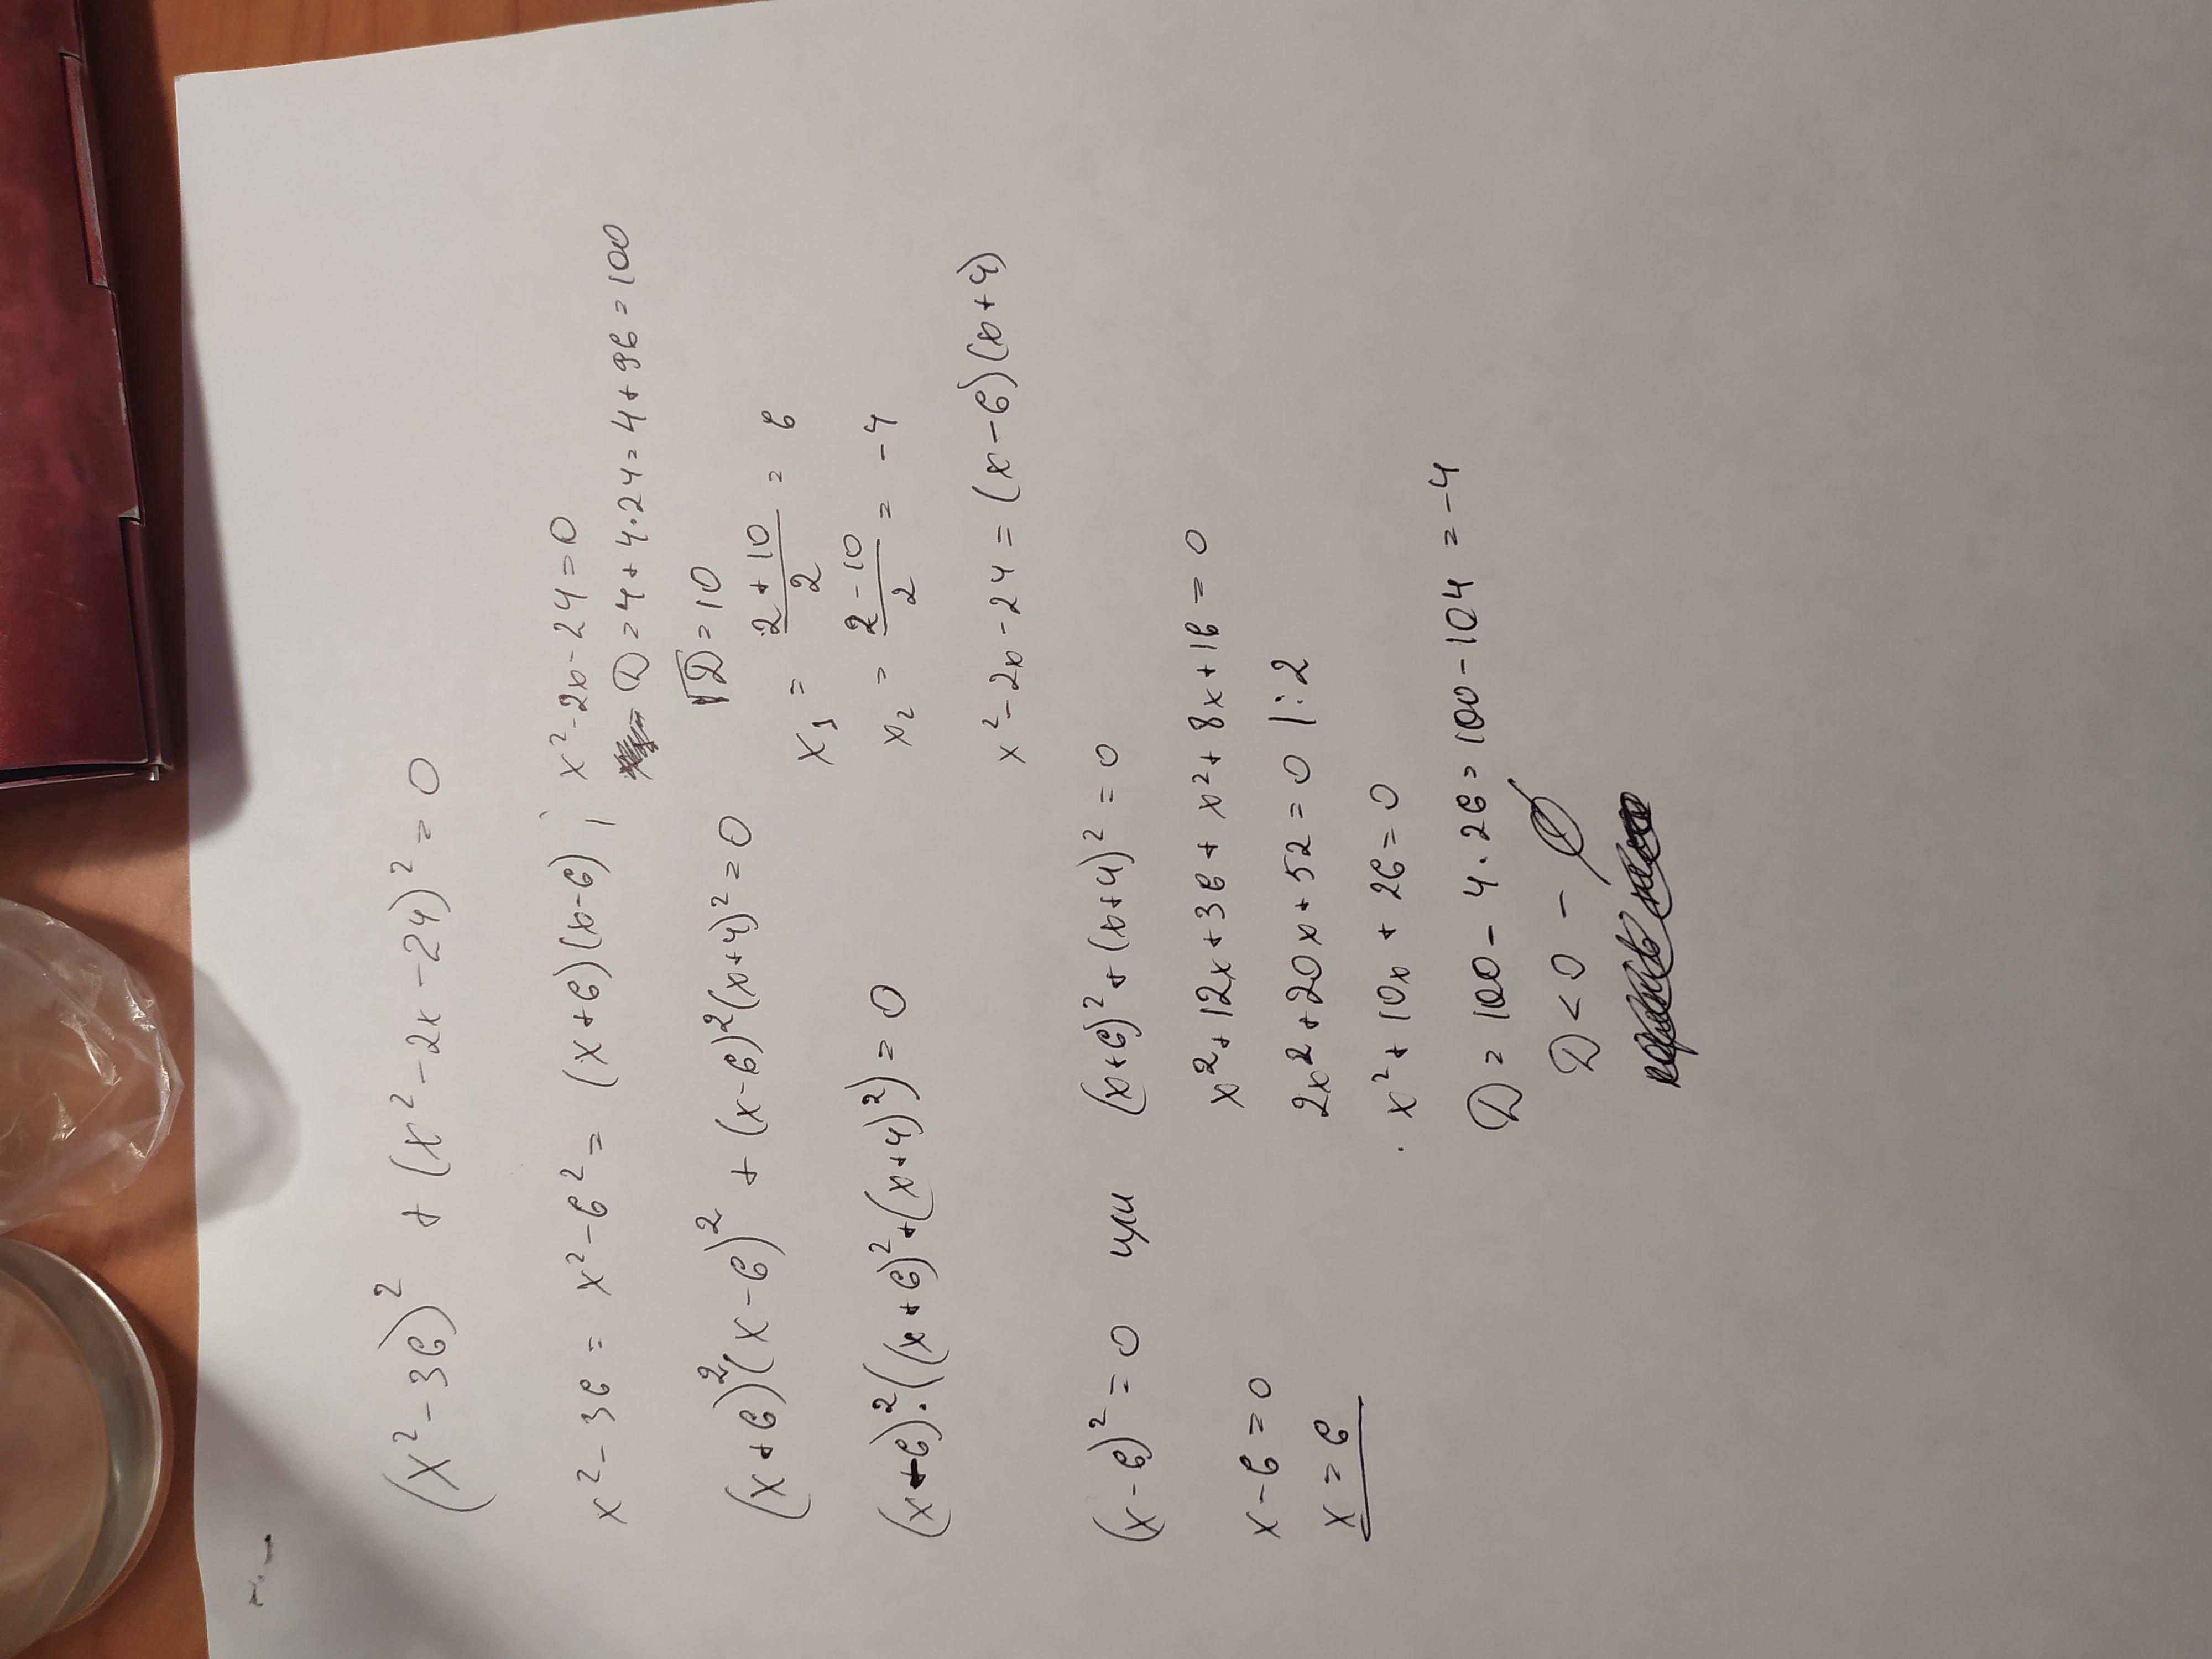 (x² - 36)² + (x² - 2x - 24)² = 0
x² - 36 = x² - 6² = (x + 6)(x - 6) ; x² - 2x - 24 = 0
D = 4 + 4·24 = 4 + 96 = 100
√D = 10
(x + 6)²·(x - 6)² + (x - 6)²(x + 4)² = 0
x₁ = (2 + 10)/2 = 6
x₂ = (2 - 10)/2 = -4
(x + 6)²·((x + 6)² + (x + 4)²) = 0
x² - 2x - 24 = (x - 6)(x + 4)
(x - 6)² = 0 или (x + 6)² + (x + 4)² = 0
x² + 12x + 36 + x² + 8x + 16 = 0
x - 6 = 0
2x² + 20x + 52 = 0 | : 2
x = 6
x² + 10x + 26 = 0
D = 100 - 4·26 = 100 - 104 = -4
D < 0 - ∅